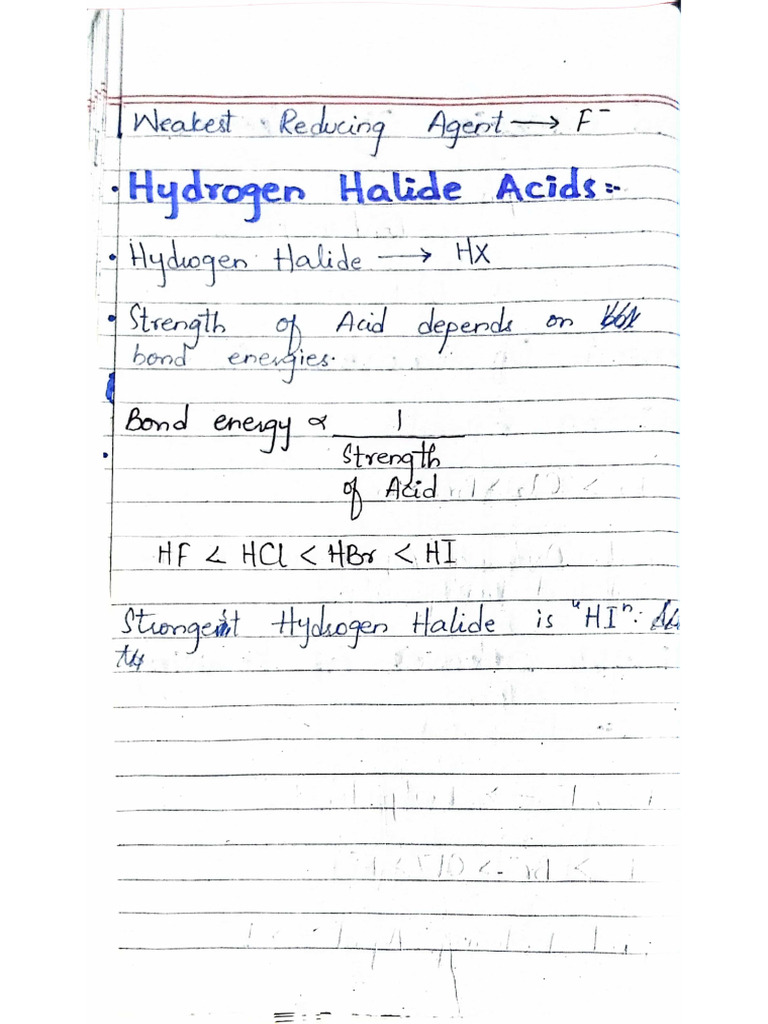 Weakest Reducing Agent → F⁻
• Hydrogen Halide Acids:-
• Hydrogen Halide → HX
• Strength of Acid depends on
bond energies.
Bond energy ∝ 1
Strength
of Acid
HF < HCl < HBr < HI
Strongest Hydrogen Halide is "HI".